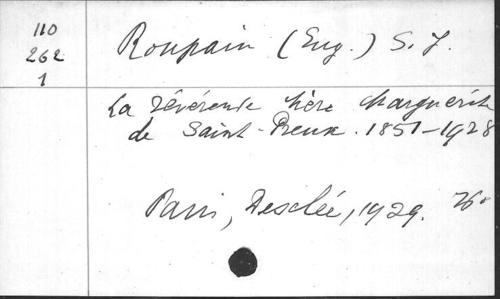 110
262
1
Roupain (Eug.) S. J.
La Révérende Mère Marguerite
de Saint-Preux. 1851-1928
Paris, Desclée, 1929.